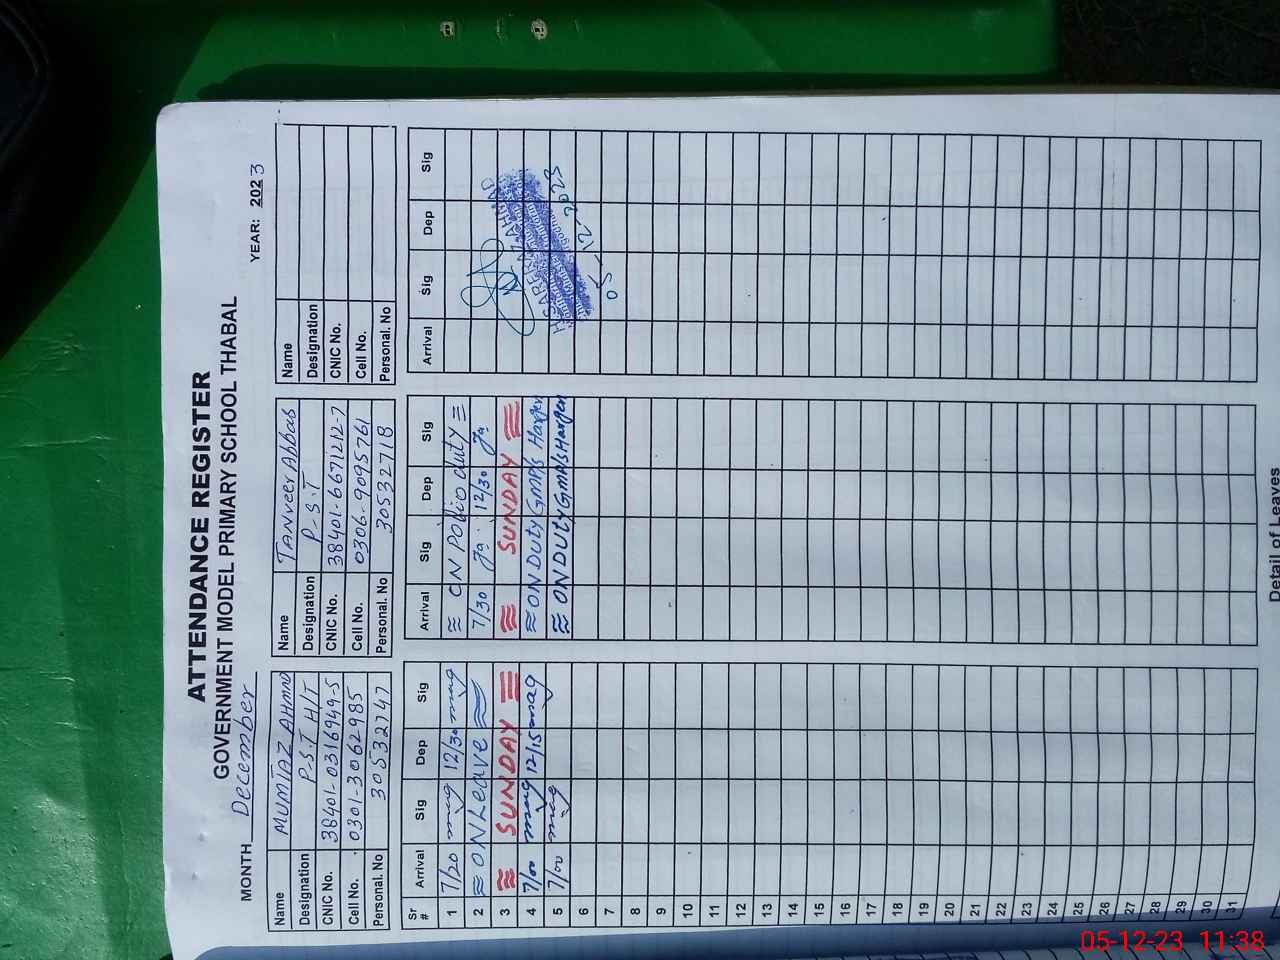 ATTENDANCE REGISTER
GOVERNMENT MODEL PRIMARY SCHOOL THABAL
MONTH December YEAR: 2023
Name MUMTAZ AHMAD
Designation P-S.T H/T
CNIC No. 38401-0316949-5
Cell No. 0301-3062985
Personal. No 30532747
Name TANveer Abbas
Designation P-S.T
CNIC No. 38401-6671212-7
Cell No. 0306-9095761
Personal. No 30532718
Name
Designation
CNIC No.
Cell No.
Personal. No
Sr # Arrival Sig Dep Sig Arrival Sig Dep Sig Arrival Sig Dep Sig
1 7/20 mag 12/30 mag ON Polio duty
2 ON Leave 7/30 12/30
3 SUNDAY SUNDAY
4 7/00 mag 12/15 mag ON Duty GMP/s
5 7/00 mag ON DUTY GMP/s
6
7
8
9
10
11
12
13
14
15
16
17
18
19
20
21
22
23
24
25
26
27
28
29
30
31
AHMAD
05-12-2023
Detail of Leaves
05-12-23 11:38